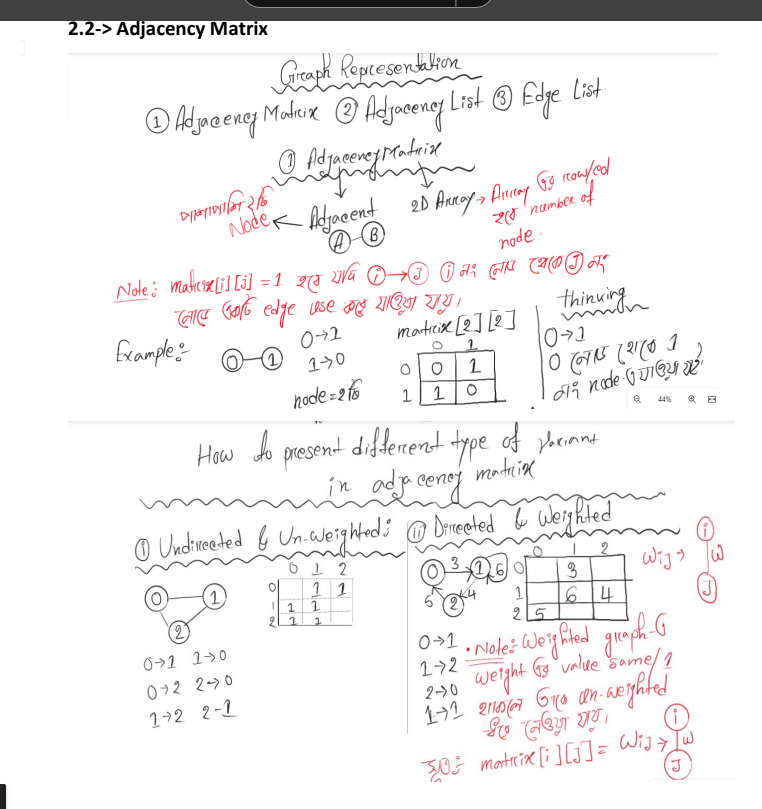 2.2-> Adjacency Matrix
Graph Representation
① Adjacency Matrix ② Adjacency List ③ Edge List
① Adjacency Matrix
পাশাপাশি ২টি Node ← Adjacent
A B
2D Array → Array এর row/col
হবে number of
node.
Note: matrix[i][j] = 1 হবে যদি i→J i নং নোড থেকে J নং
নোডে একটি edge use করে যাওয়া যায়।
Example:-
0 1
0→1
1→0
node = 2টি
matrix[2][2]
0 1
0 0 1
1 1 0
thinking
0→1
0 নোড থেকে 1
নং node এ যাওয়া যায়
44%
How to present different type of variant
in adjacency matrix
① Undirected & Un-weighted:
0 1
2
0→1 1→0
0→2 2→0
1→2 2-1
0 1 2
0 1 1
1 1 1
2 1 1
ii Directed & Weighted
0 3 1 6
6 2 4
0 1 2
0 3
1 6 4
2 5
Wij →
i
W
J
0→1
1→2
2→0
1→1
Note: Weighted graph-এ
weight এর value same/1
থাকলে তাকে un-weighted
নেওয়া যায়,
matrix[i][J] = Wij →
i
W
J